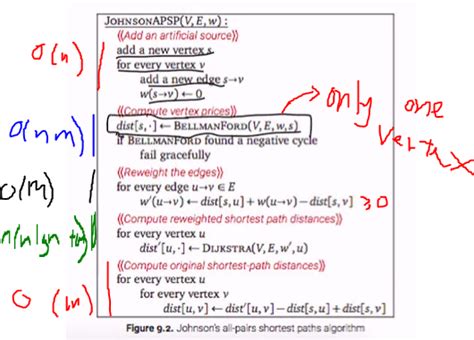 JOHNSONAPSP(V, E, w):
⟨⟨Add an artificial source⟩⟩
add a new vertex s
for every vertex v
add a new edge s→v
w(s→v) ← 0
O(n)
⟨⟨Compute vertex prices⟩⟩
dist[s, ·] ← BELLMANFORD(V, E, w, s)
only one
vertex
O(nm)
if BELLMANFORD found a negative cycle
fail gracefully
⟨⟨Reweight the edges⟩⟩
for every edge u→v ∈ E
w′(u→v) ← dist[s, u] + w(u→v) − dist[s, v]
≥0
O(m)
⟨⟨Compute reweighted shortest path distances⟩⟩
for every vertex u
dist′[u, ·] ← DIJKSTRA(V, E, w′, u)
⟨⟨Compute original shortest-path distances⟩⟩
for every vertex u
for every vertex v
dist[u, v] ← dist′[u, v] − dist[s, u] + dist[s, v]
Figure 9.2. Johnson's all-pairs shortest paths algorithm